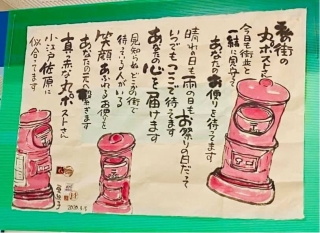 我街の
丸ポストさん
今日も街並と
一緒に見守って
あなたのお便りを待ってます
晴れの日も雨の日もお祭りの日だって
いつでもここで待ってます
あなたの心を届けます
見知らぬどこかの街で
待っている人がいる
笑顔あふれるお便りを
あなたの元へ繋ぎます
真赤な丸ポストさん
小江戸佐原に
似合ってます